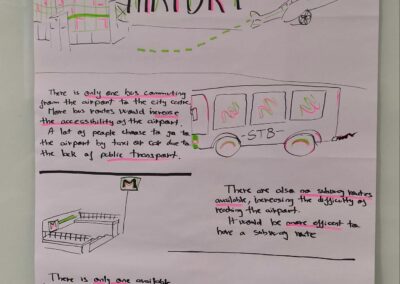 AIRPORT
There is only one bus commuting
from the airport to the city centre.
More bus routes would increase
the accessibility of the airport.
A lot of people choose to go to
the airport by taxi or car due to
the lack of public transport.
-STB-
M
There are also no subway routes
available, increasing the difficulty of
reaching the airport.
It would be more efficent to
have a subway route
There is only one available